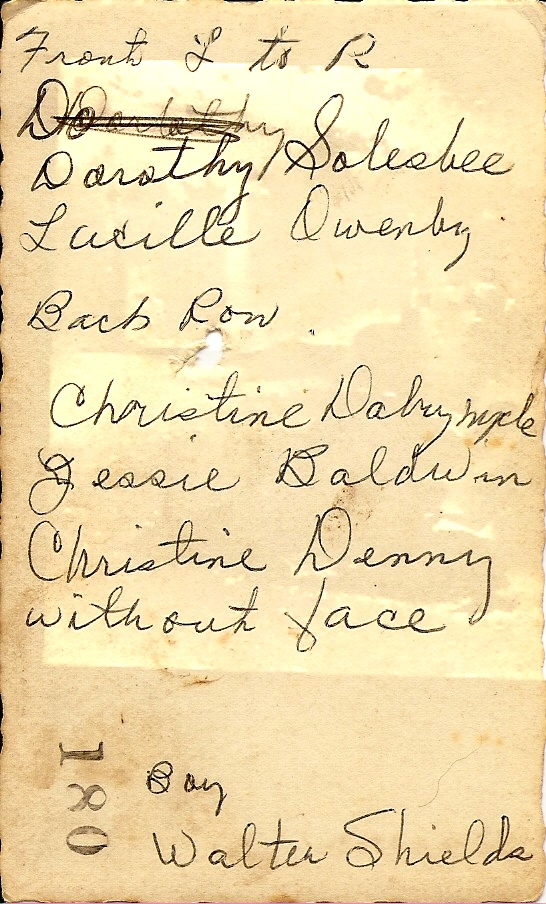 Front L to R
Dorothy Solesbee
Lucille Owenby
Back Row
Christine Dalrymple
Jessie Baldwin
Christine Denny
without face
180
Boy
Walter Shields